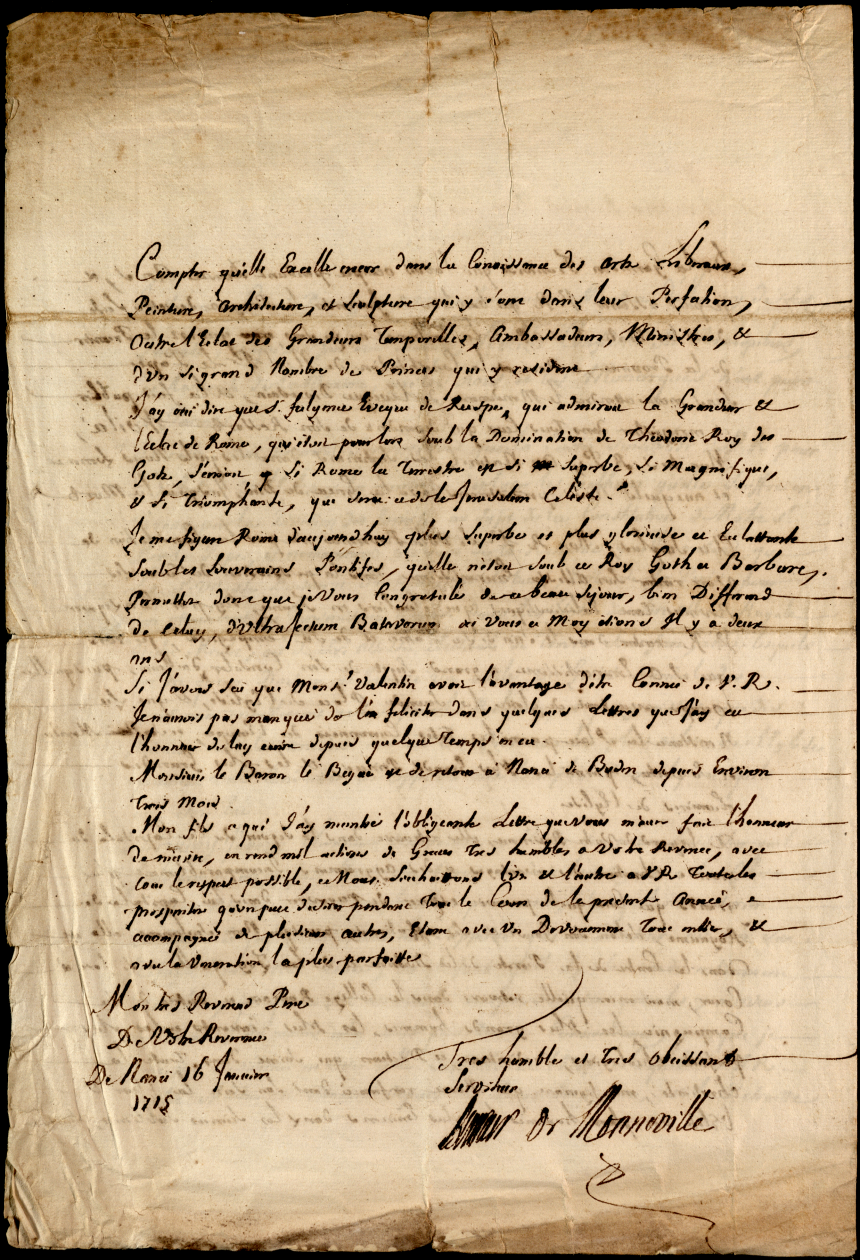 Compter qu'elle Excelle encor dans la Conoissance des arts Liberaux,
Peinture, architecture, et sculpture qui y sont dans leur Perfection,
Outre l'Eclat des Grandeurs Temporelles, Ambassadeurs, Ministres, &
d'un si grand Nombre de Princes qui y resident
J'ay oui dire que St. fulgence Eveque de Ruspe, qui admiroit la Grandeur &
l'Eclat de Rome, qui étoit pour lors soub la Domination de Theodoric Roy des
Goth, s'écrioit Si Rome la Terrestre est si superbe, si Magnifique,
et si Triomphante, que sera-ce de la Jerusalem Celeste.
Je me figure Rome d'aujourdhuy plus superbe et plus glorieuse et Esclattante
soub les souverains Pontifes, qu'elle n'étoit soub ce Roy Goth et Barbare,
Permettez donc que je vous Congratule de ce beau sejour, bien Differend
de Celuy, d'Ultrajectum Batavorum où vous et Moy étions Il y a deux
ans
Si J'avois sceu que Monsr Valentin avoit l'avantage d'être Connu de V. R.
Je n'aurois pas manqué de l'en feliciter dans quelques Lettres que J'ay eu
l'honneur de luy écrire depuis quelque temps en ça.
Monsieur le Baron le Begue est de retour à Nanci de Baden depuis Environ
trois Mois.
Mon fils a qui J'ay montré l'obligeante Lettre que vous m'avez fait l'honneur
de m'écrire, en rend mil actions de Graces Tres humbles a Votre Reverence, avec
tout le respect possible, et Nous souhaittons l'un et l'autre a V R Toutes les
prosperités pendant Tout le Cours de la presente Anneé,
acompagneé de plusieurs autres, Etant avec un Devouement Tout entier, &
avec la Veneration la plus parfaitte
Mon tres Reverend Pere
De Votre Reverence
De Nanci 16 Janvier
1715
Tres humble et Tres Obeissant
Serviteur
de Monneville